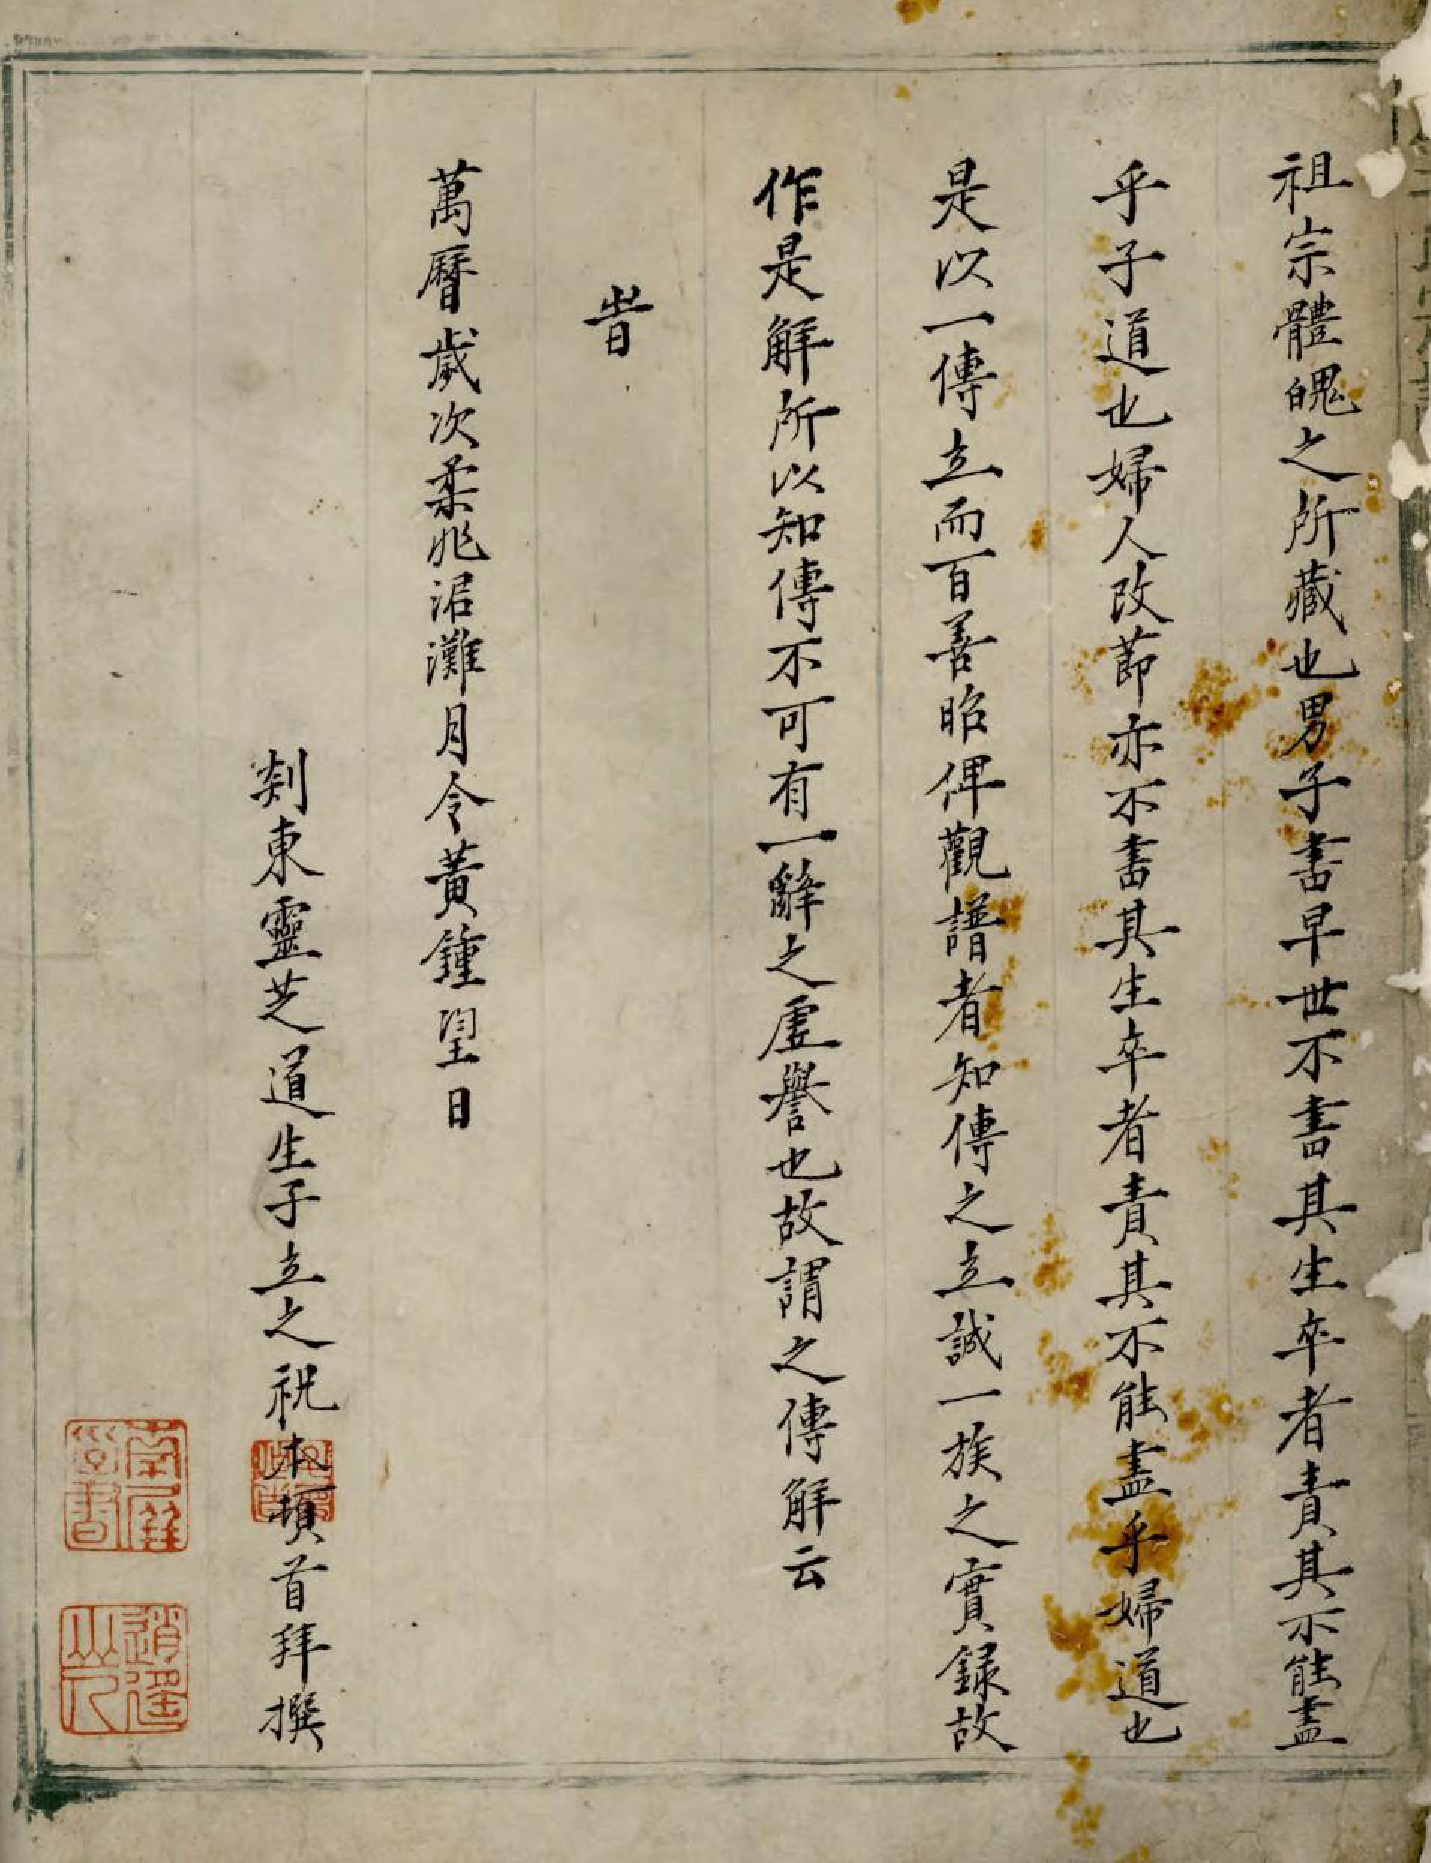 祖宗體魄之所藏也男子書早世不書其生卒者責其不能盡
乎子道也婦人改莭亦不書其生卒者責其不能盡乎婦道也
是以一傳立而百善昭俾觀譜者知傳之立誠一族之實録故
作是解所以知傳不可有一辭之虛譽也故謂之傳解云
旹
萬曆歲次柔兆涒灘月令黃鍾望日
剡東靈芝道生子立之祝本頓首拜撰
南屏堂書
逍遥山人